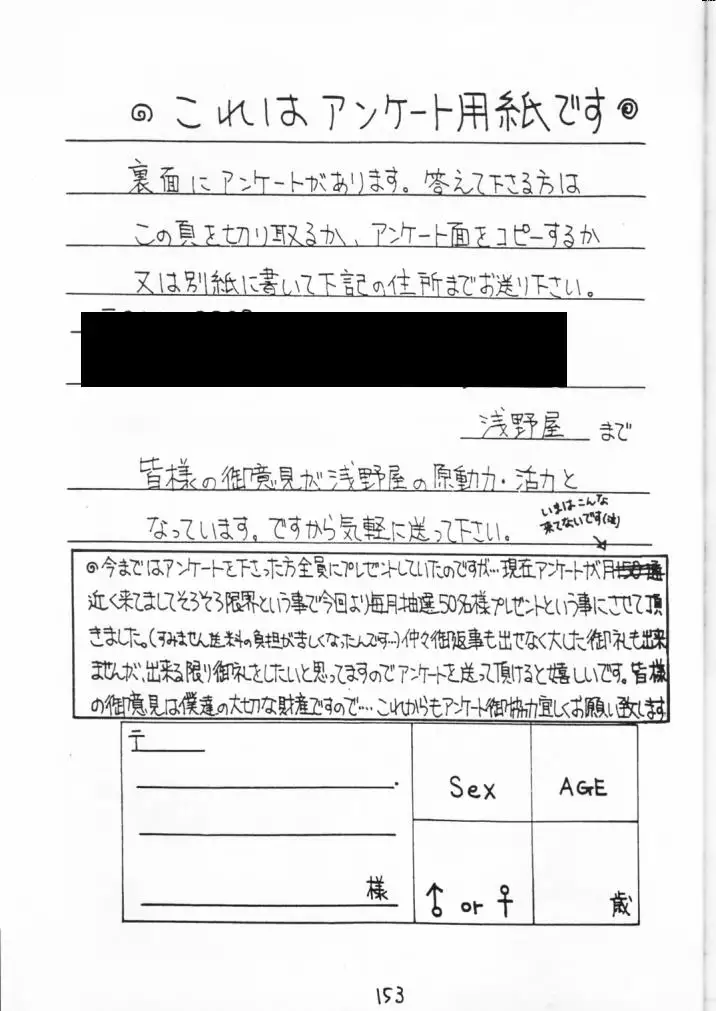 これはアンケート用紙です
裏面にアンケートがあります。答えて下さる方は
この頁を切り取るか、アンケート面をコピーするか
又は別紙に書いて下記の住所までお送り下さい。
浅野屋 まで
皆様の御意見が浅野屋の原動力・活力と
いまはこんな
来てないです(泣)
なっています。ですから気軽に送って下さい。
◎今まではアンケートを下さった方全員にプレゼントしていたのですが…現在アンケートが月150通
近く来てましてそろそろ限界という事で今回より毎月抽選50名様プレゼントという事にさせて頂
きました。(すみません送料の負担が苦しくなったんです…)仲々御版事も出せなく大した御礼も出来
ませんが、出来る限り御礼をしたいと思ってますのでアンケートを送って頂けると嬉しいです。皆様
の御意見は僕達の大切な財産ですので…これからもアンケート御協力宜しくお願い致します
〒
様
Sex
AGE
♂ or ♀
歳
153